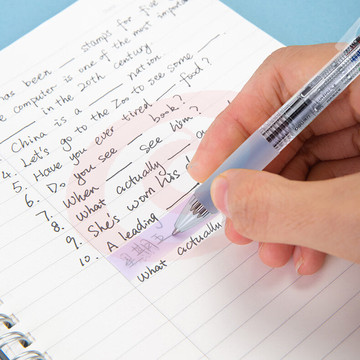 has been ___ stamps for five
e computer is one of the most important
___ in the 20th century
China is a ___ nation
4. Let's go to the Zoo to see some ___
5. Have you ever tired ___ food?
6. Do you see ___ book?
7. When ___ see him?
8. what actually
9. She's worn has
10. A leading
what actually